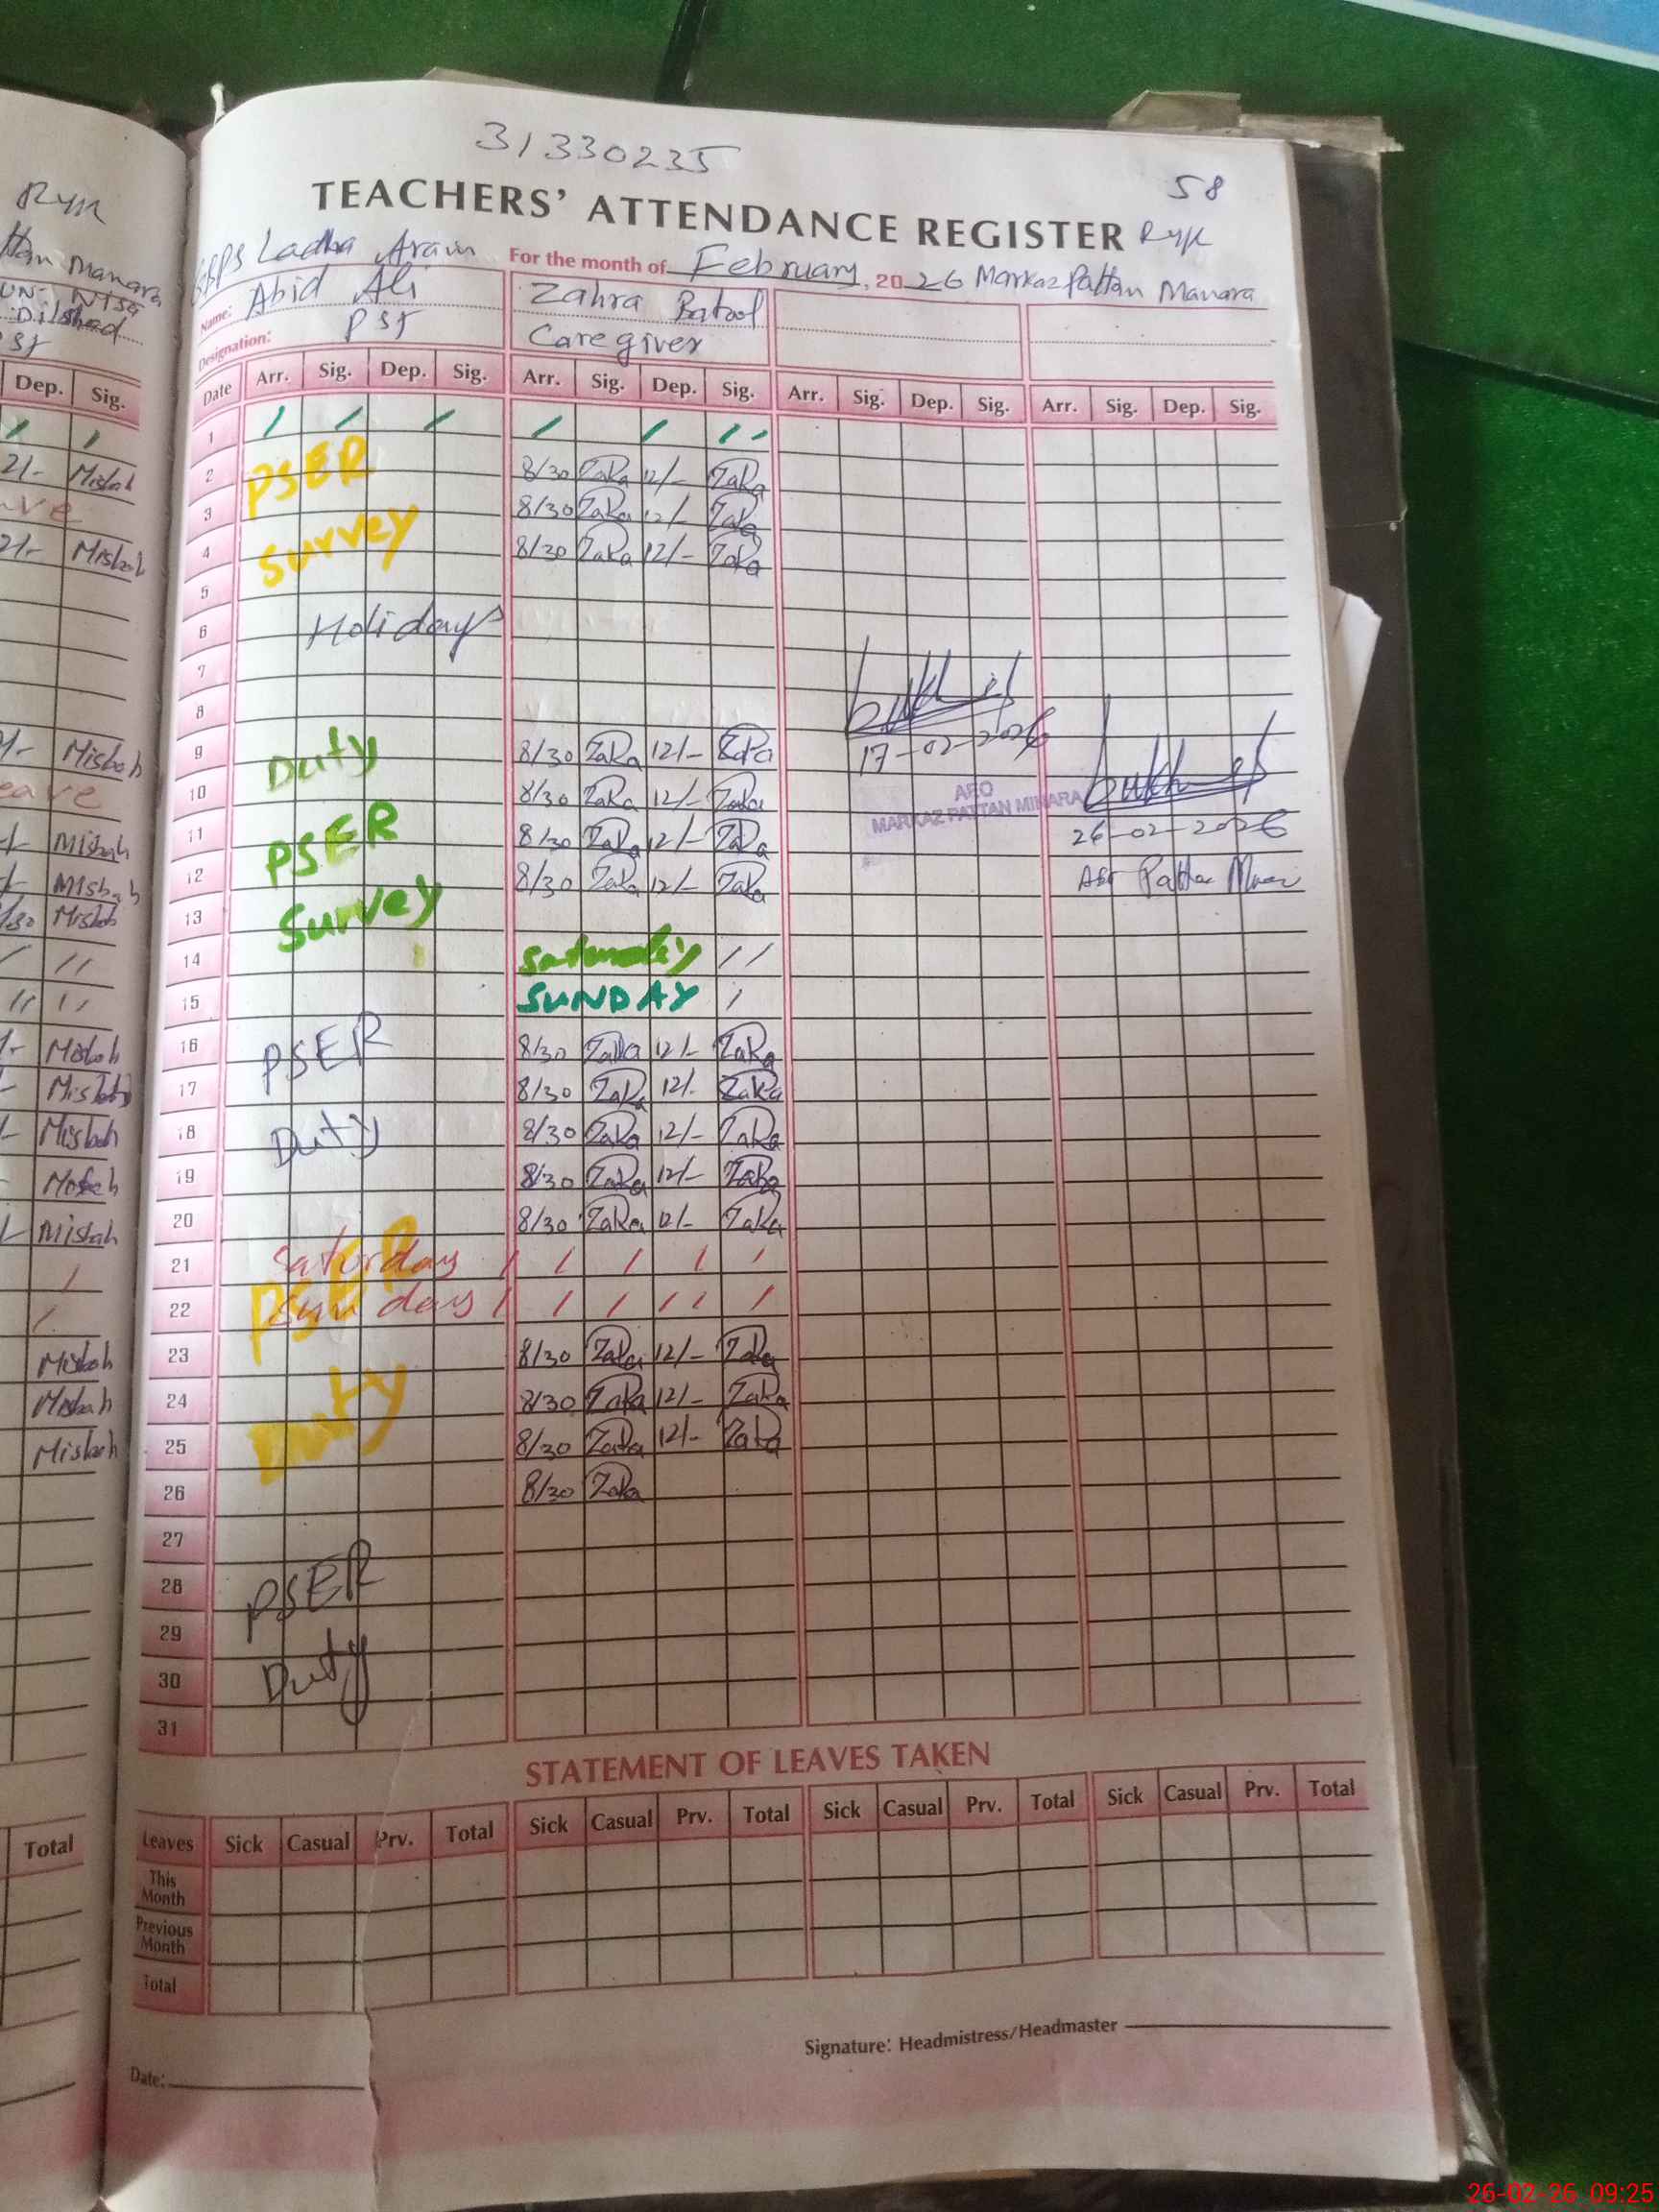 Ryk
Manara
Dilshad
Dep. Sig.
2/- Misbah
2/- Misbah
Misbah
eave
Misbah
Misbah
Misbah
Misbah
Misbah
Misbah
Misbah
Misbah
Misbah
Misbah
Total
31330235
58
TEACHERS' ATTENDANCE REGISTER Ryk
GGPS Ladha Arain For the month of February, 2026 Markaz Pattan Manara
Name: Abid Ali Zahra Batool
Designation: PST Caregiver
Date Arr. Sig. Dep. Sig. Arr. Sig. Dep. Sig. Arr. Sig. Dep. Sig. Arr. Sig. Dep. Sig.
1
2 PSER 8/30 Zaka 12/- Zaka
3 Survey 8/30 Zaka 12/- Zaka
4 8/30 Zaka 12/- Zaka
5
6 Holidays
7
8
9 Duty 8/30 Zaka 12/- Zaka 17-02-2026
10 8/30 Zaka 12/- Zaka AEO
MARKAZ PATTAN MINARA
11 PSER 8/30 Zaka 12/- Zaka 26-02-2026
12 8/30 Zaka 12/- Zaka
13 Survey
14 Saturday
15 SUNDAY
16 PSER 8/30 Zaka 12/- Zaka
17 8/30 Zaka 12/. Zaka
18 Duty 8/30 Zaka 12/- Zaka
19 8/30 Zaka 12/- Zaka
20 8/30 Zaka 12/- Zaka
21 Saturday PSER
22 Sunday
23 8/30 Zaka 12/- Zaka
24 Duty 8/30 Zaka 12/- Zaka
25 8/30 Zaka 12/- Zaka
26 8/30 Zaka
27
28 PSER
29
30 Duty
31
STATEMENT OF LEAVES TAKEN
Leaves Sick Casual Prv. Total Sick Casual Prv. Total Sick Casual Prv. Total Sick Casual Prv. Total
This Month
Previous Month
Total
Signature: Headmistress/Headmaster
Date:
26-02-26 09:25